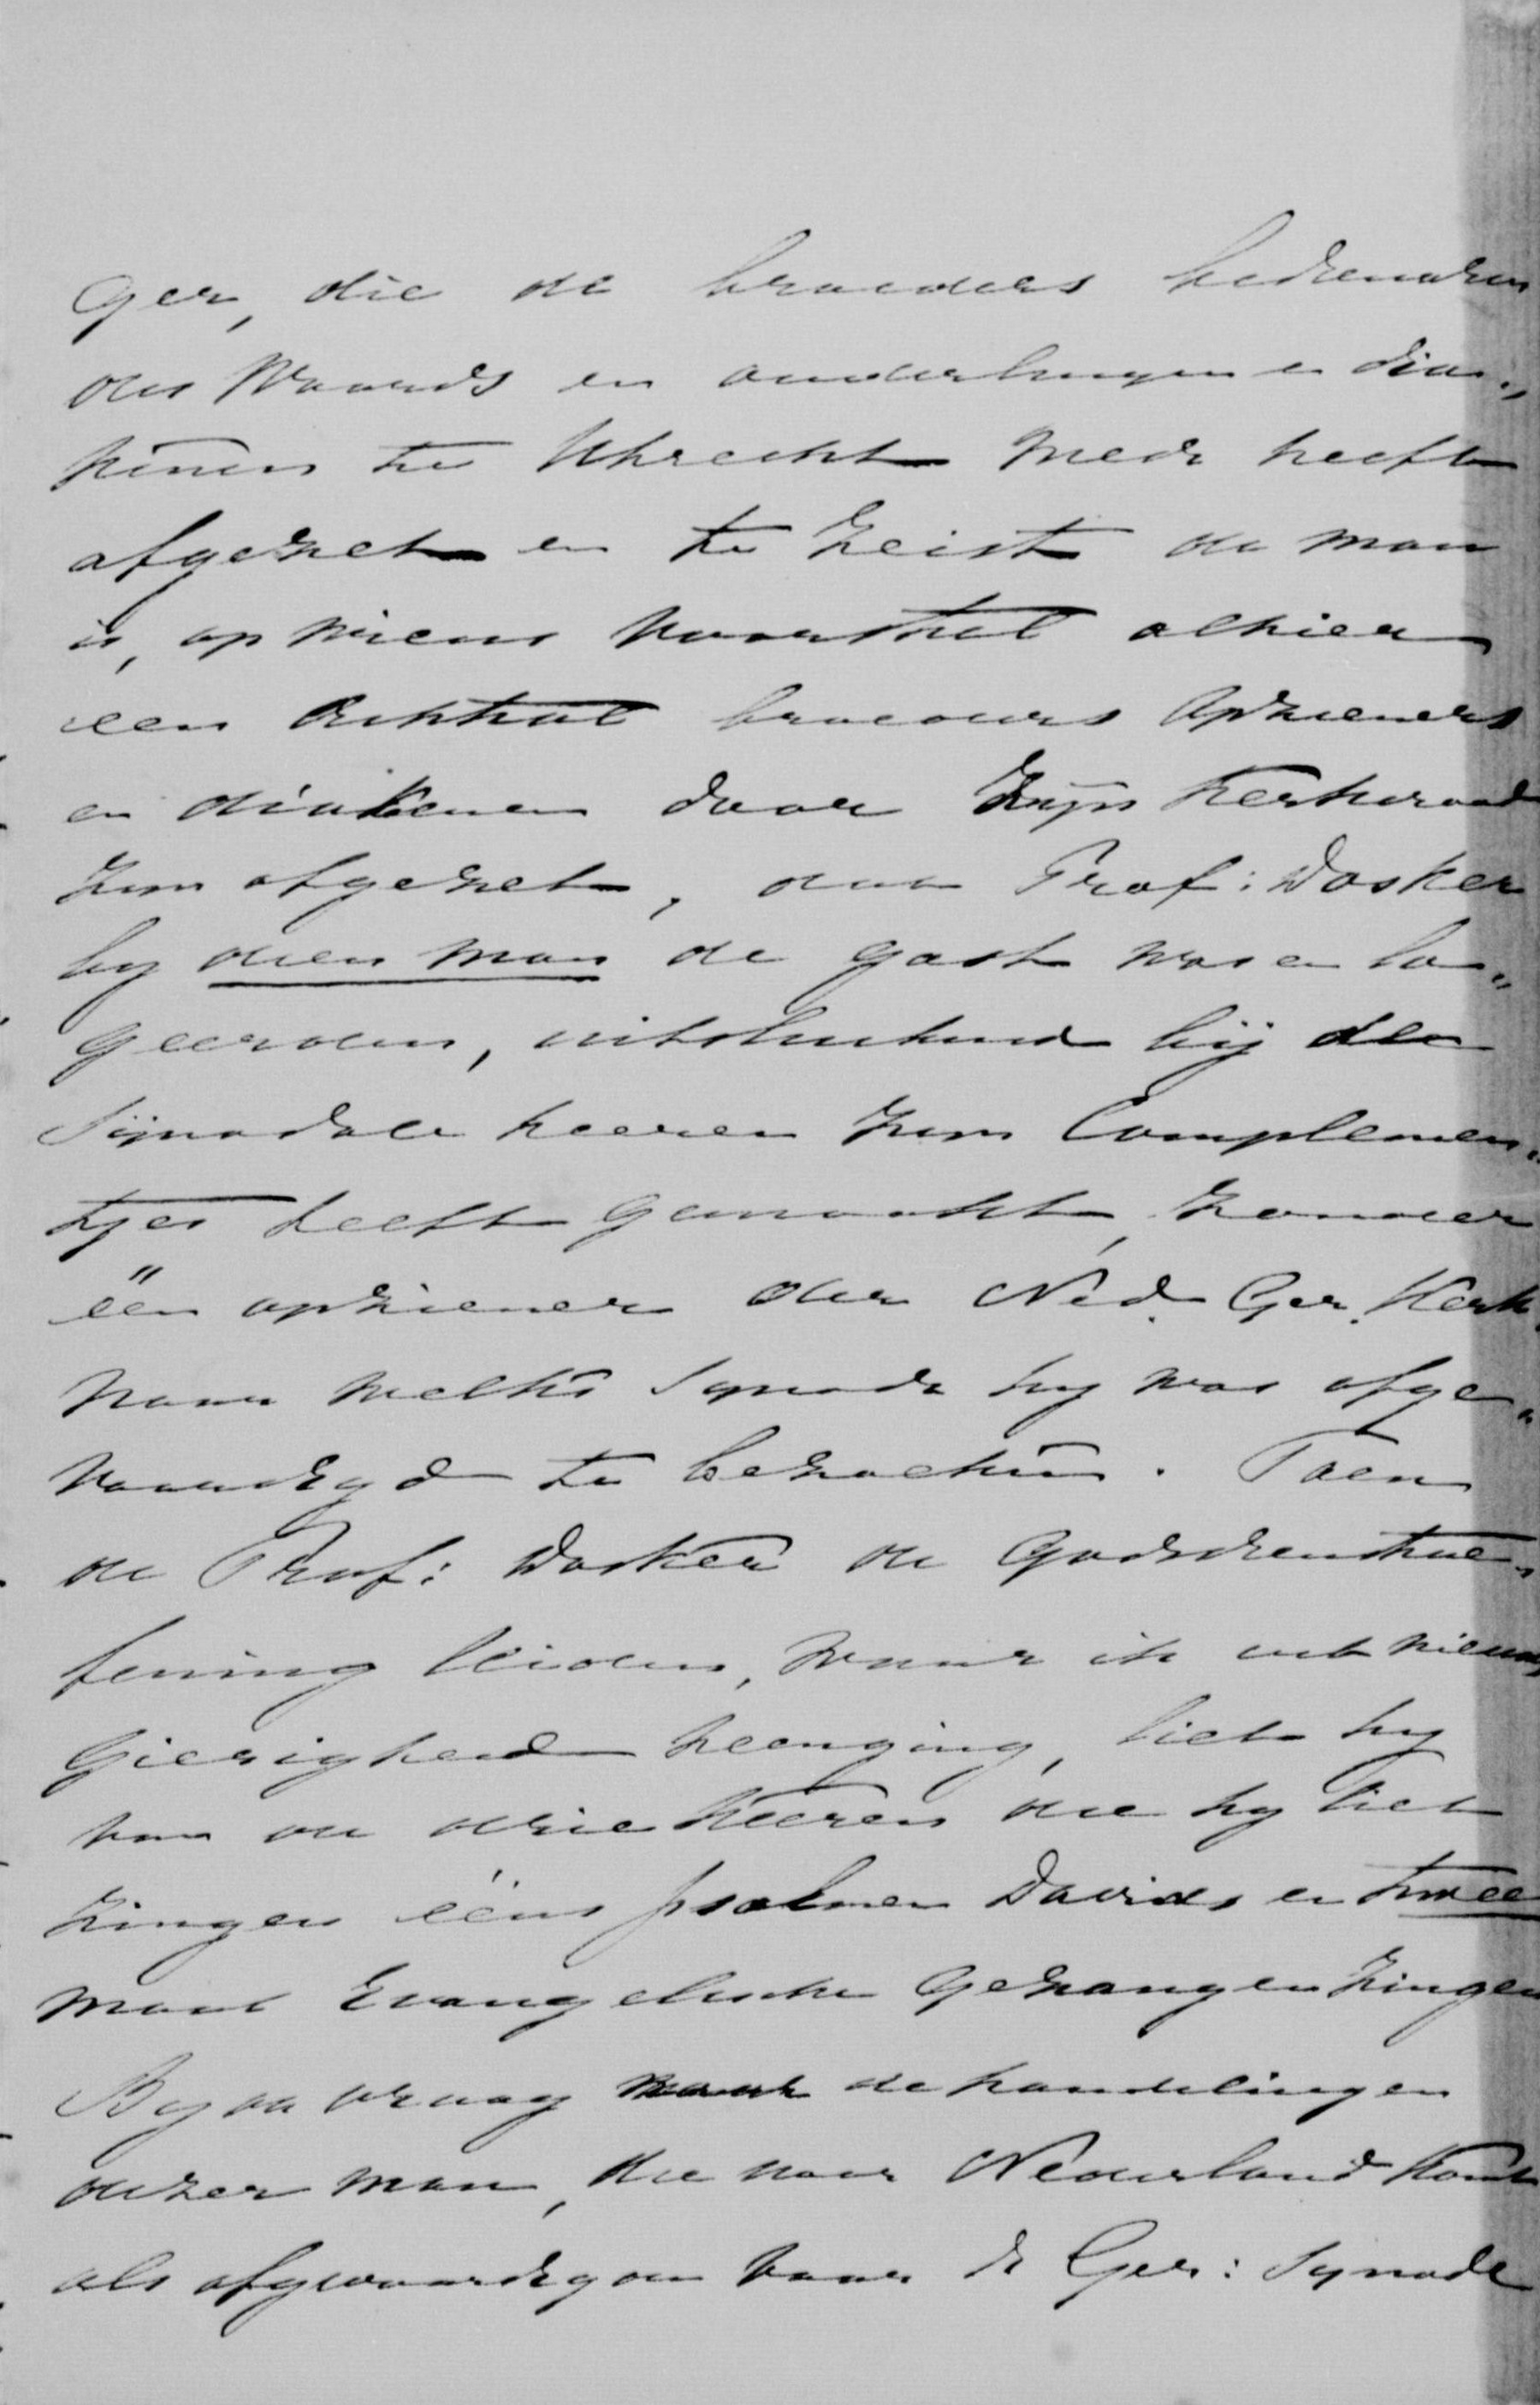 ger, die de broeders bedienaren
des Woords en ouderlingen en dia„
kenen te Utrecht mede heeft
afgezet en te Zeist de man
is, op wiens voorstel alhier
een achttal broeders Opzieners
en diakenen door zijn Kerkeraad
zijn afgezet, dat Prof: Dosker
by dien man de gast was en lo„
geerden, uitsluitend bij de
Synodale heeren zijn Complemen„
tjes heeft gemaakt, zonder
één opziener der Ned. Ger. Kerk,
naar welks Synode hy was afge„
vaardigd te bezoeken. Toen
de Prof: Dosker de Godsdienstoe„
fening leiden, waar ik uit nieuws
gierigheid heenging, liet hy
van de drie keeren die hy liet
zingen ééns psalmen Davids en twee
maal Evangelische Gezangen zingen
By de vraag naar de handelingen
dezer man, die naar Nederland komt
als afgevaardigde naar de Ger: Synode